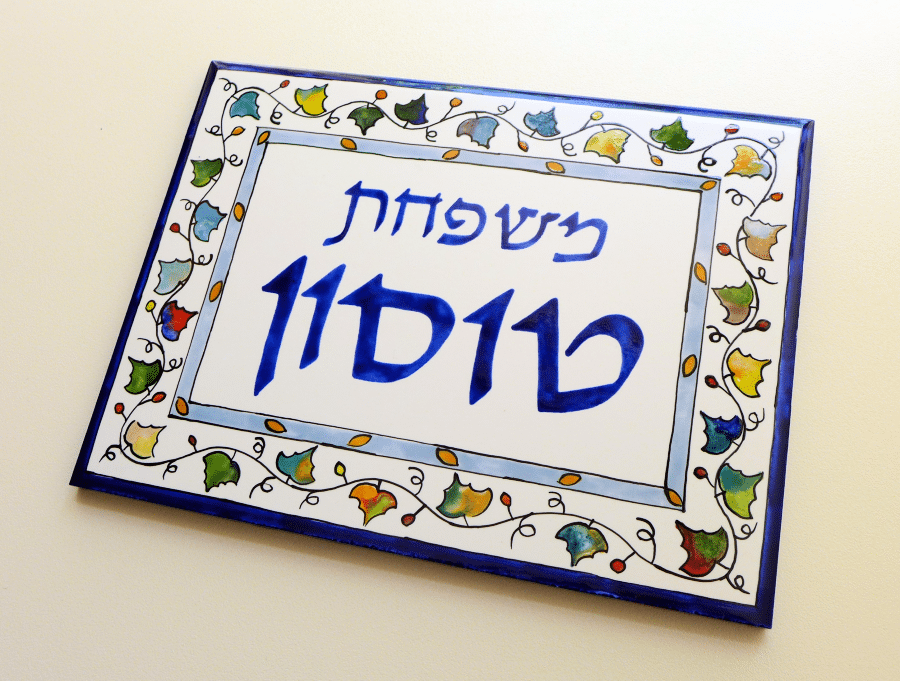 משפחת
טוסון